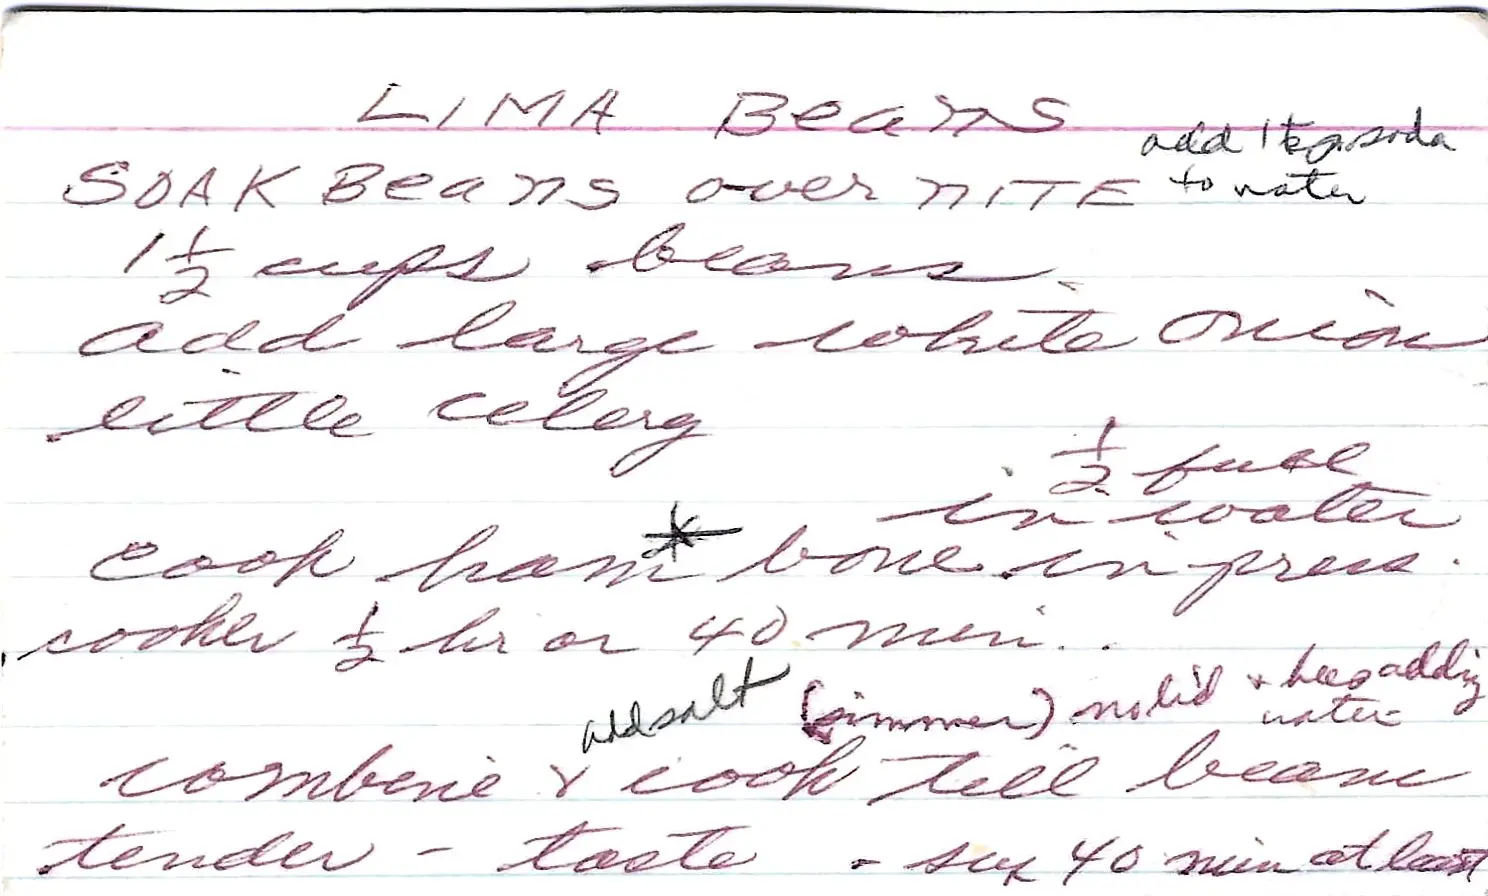 LIMA Beans
add 1 tsp soda
SOAK Beans over NITE to water
1 1/2 cups beans
add large white onion
little celery
1/2 full
in water
cook ham * bone in press.
cooker 1/2 hr or 40 min..
add salt (simmer) no lid + keep adding
water
combine & cook till beans
tender - taste - 40 min at least